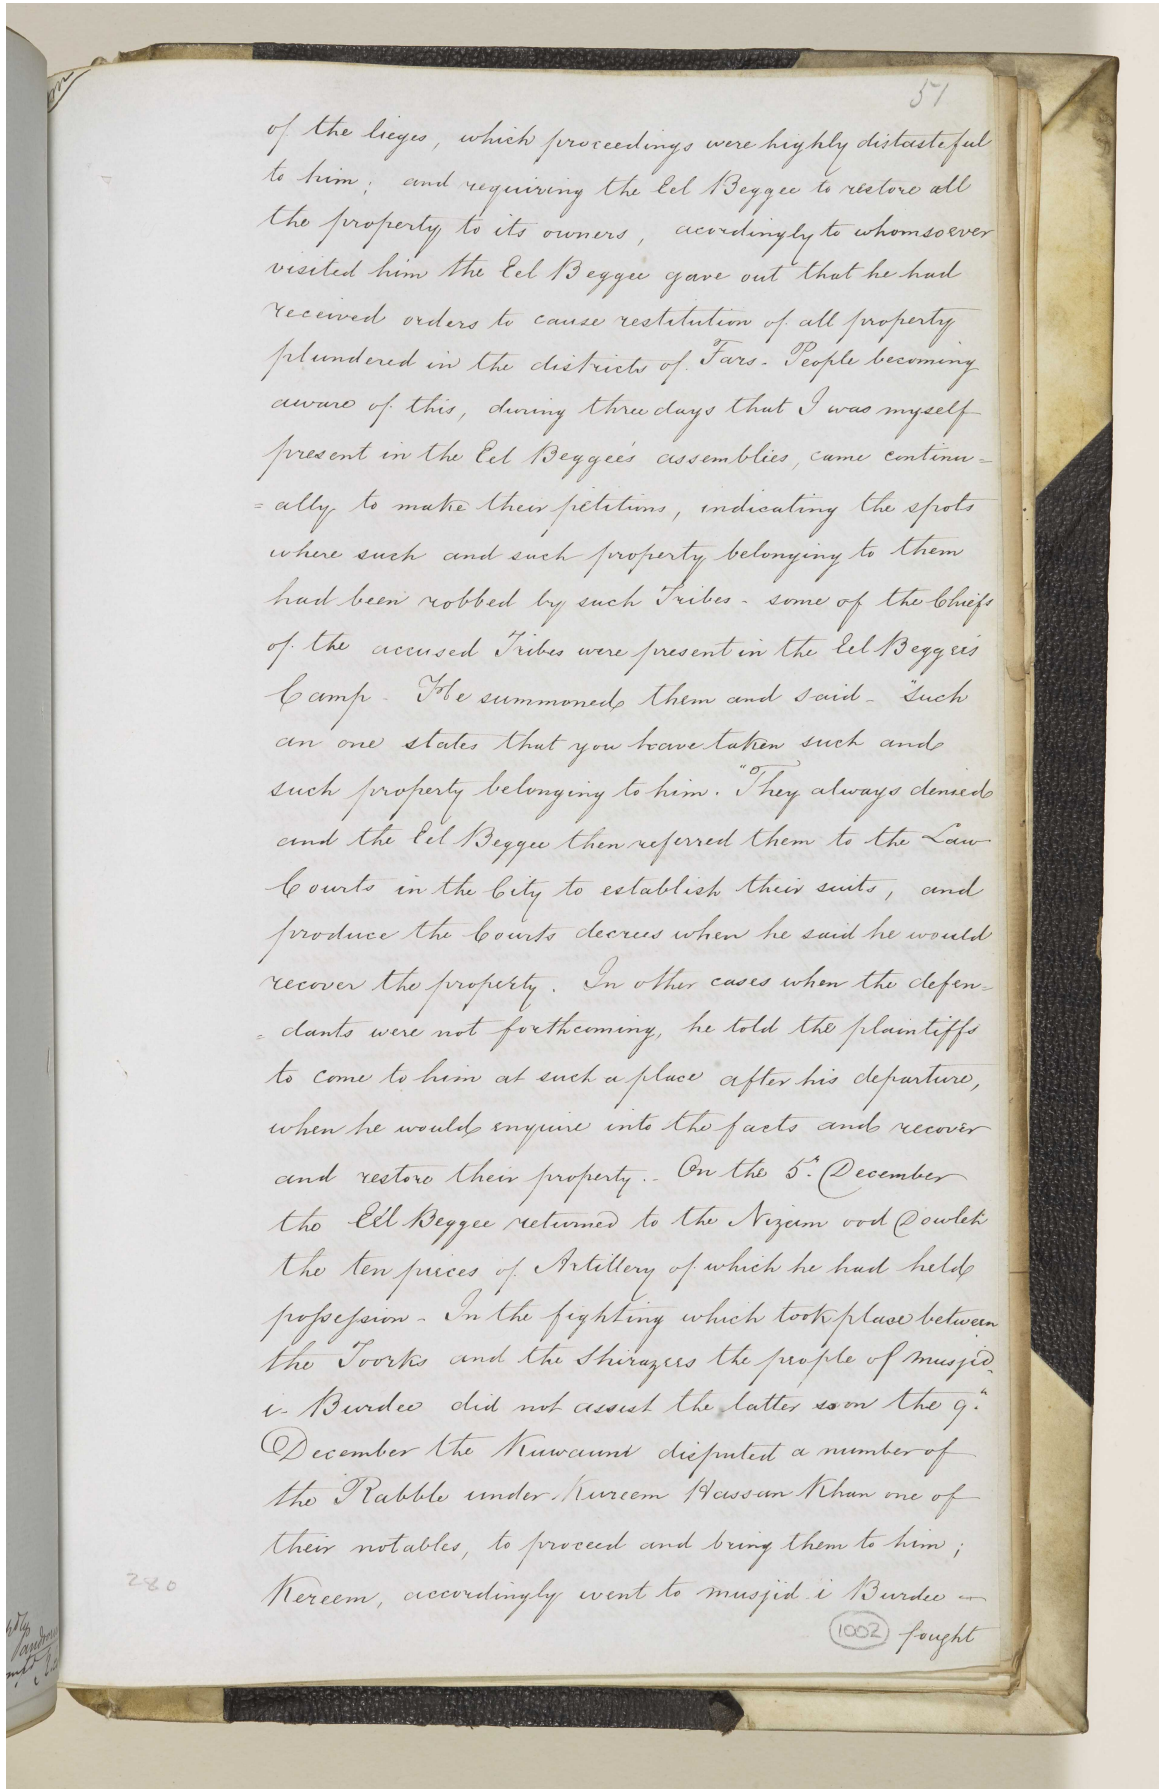 51
of the lieges, which proceedings were highly distasteful
to him; and requiring the Eel Beggee to restore all
the property to its owners, acordingly to whomsoever
visited him the Eel Beggee gave out that he had
received orders to cause restitution of all property
plundered in the districts of Fars - People becoming
aware of this, during three days that I was myself
present in the Eel Beggee's assemblies, came continu=
=ally to make their petitions, indicating the spots
where such and such property belonging to them
had been robbed by such Tribes - some of the Chiefs
of the accused Tribes were present in the Eel Beggee's
Camp - He summoned them and said - "Such
an one states that you have taken such and
such property belonging to him." They always denied
and the Eel Beggee then referred them to the Law
Courts in the City to establish their suits, and
produce the Courts decrees when he said he would
recover the property. In other cases when the defen=
=dants were not forthcoming, he told the plaintiffs
to come to him at such a place after his departure,
when he would enquire into the facts and recover
and restore their property. - On the 5th December
the Eel Beggee returned to the Nizam ood Dowleh
the ten pieces of Artillery of which he had held
possession - In the fighting which took place between
the Toorks and the Shirazees the people of Musjid-
i- Burdee did not assist the latter so on the 9th
December the Kuwaum disputed a number of
the Rabble under Kureem Hassan Khan one of
their notables, to proceed and bring them to him;
Kereem, accordingly went to musjid i Burdee
fought
1002
280